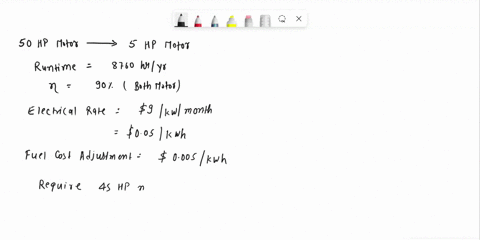 50 HP Motor → 5 HP Motor
Runtime = 8760 hr/yr
η = 90% (Both Motor)
Electrical Rate = $9/kW/month
= $0.05/kWh
Fuel Cost Adjustment = $0.005/kWh
Require 45 HP m